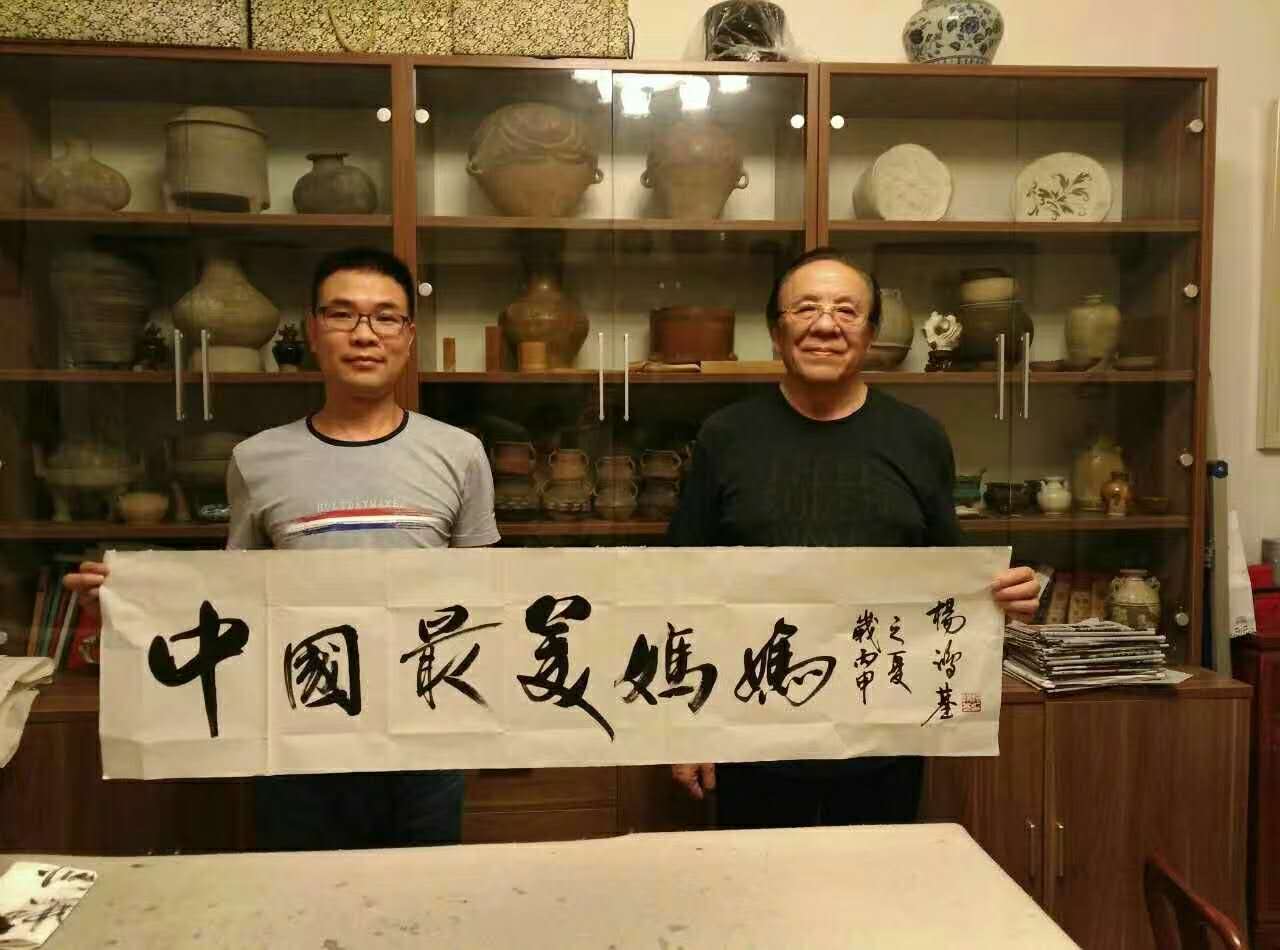 中國最美媽媽
歲丙申
之夏
楊鴻基